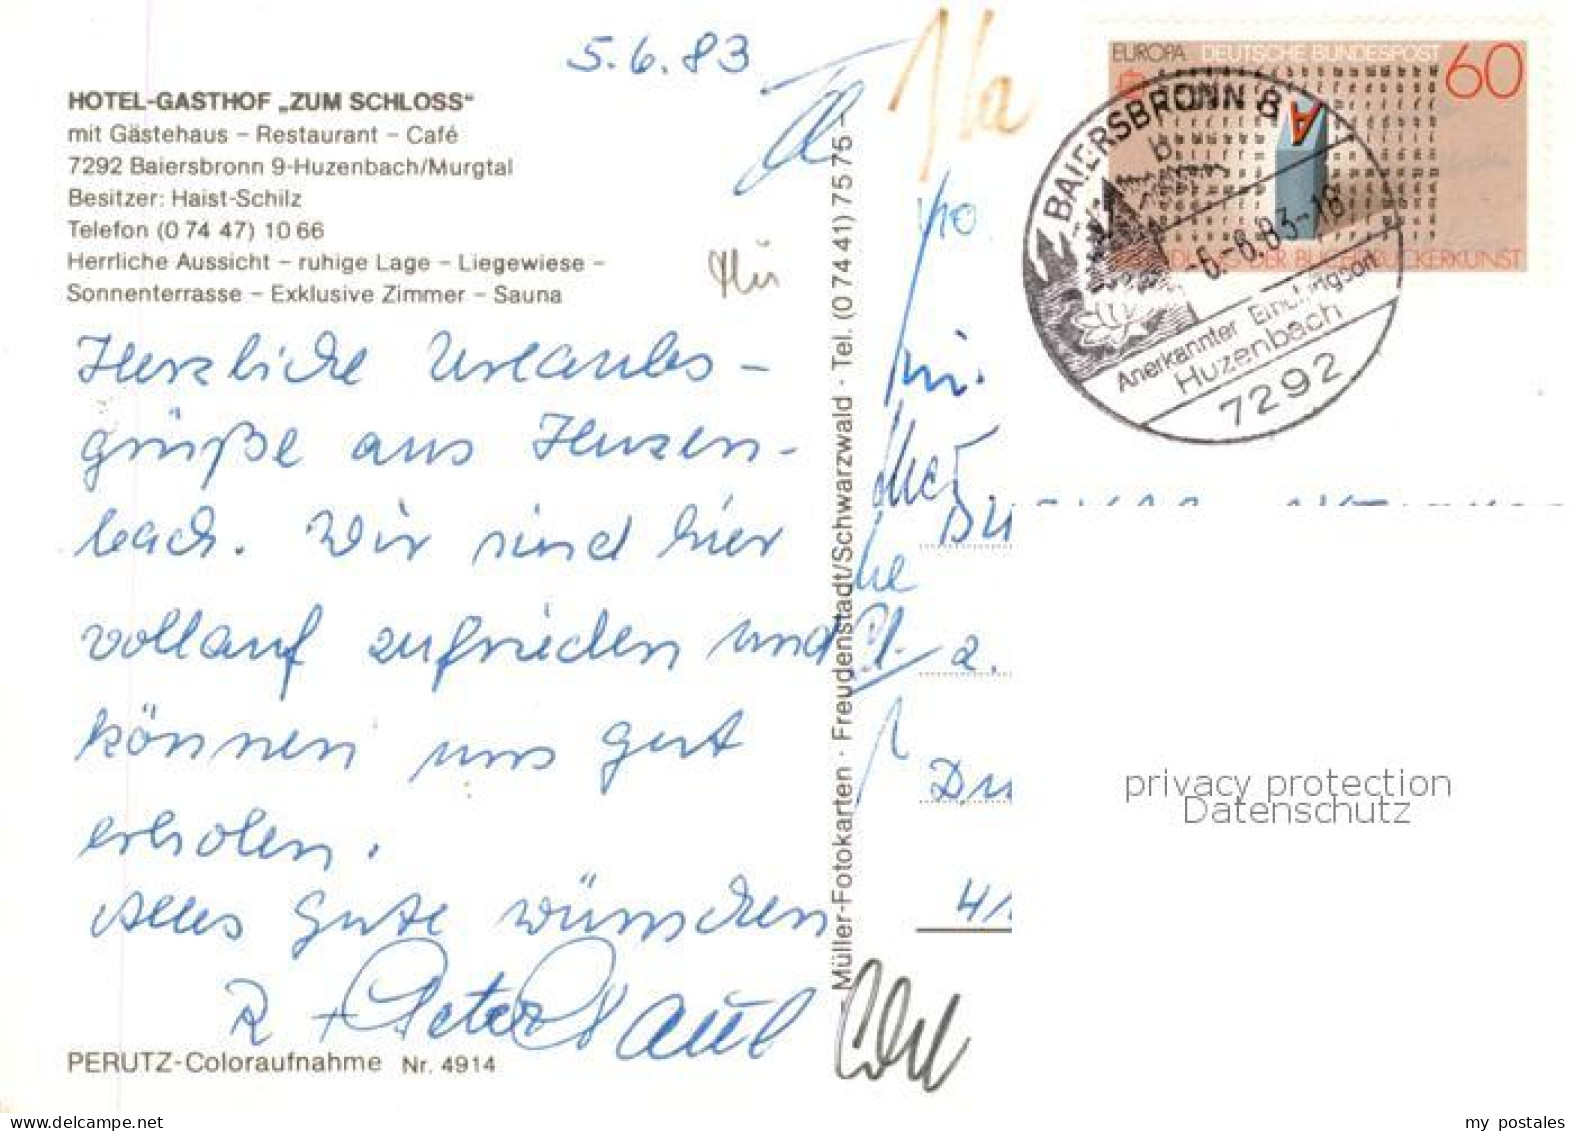 5.6.83
HOTEL-GASTHOF „ZUM SCHLOSS“
mit Gästehaus – Restaurant – Café
7292 Baiersbronn 9-Huzenbach/Murgtal
Besitzer: Haist-Schilz
Telefon (0 74 47) 10 66
Herrliche Aussicht – ruhige Lage – Liegewiese –
Sonnenterrasse – Exklusive Zimmer – Sauna
Herzliche Urlaubs-
grüße aus Huzen-
bach. Wir sind hier
vollauf zufrieden und
können uns gut
erholen.
Alles Gute wünschen
R + Peter Paul
PERUTZ-Coloraufnahme Nr. 4914
– Müller-Fotokarten · Freudenstadt/Schwarzwald · Tel. (0 74 41) 75 75 –
EUROPA DEUTSCHE BUNDESPOST 60
A
DER BUCHDRUCKERKUNST
BAIERSBRONN
b
-6.-6.83-18
Anerkannter Erholungsort
Huzenbach
7292
2.
privacy protection
Datenschutz
my postales